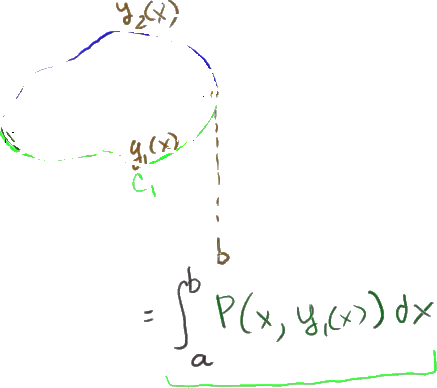 y₂(x)
y₁(x)
C₁
b
= ∫ₐᵇ P(x, y₁(x)) dx